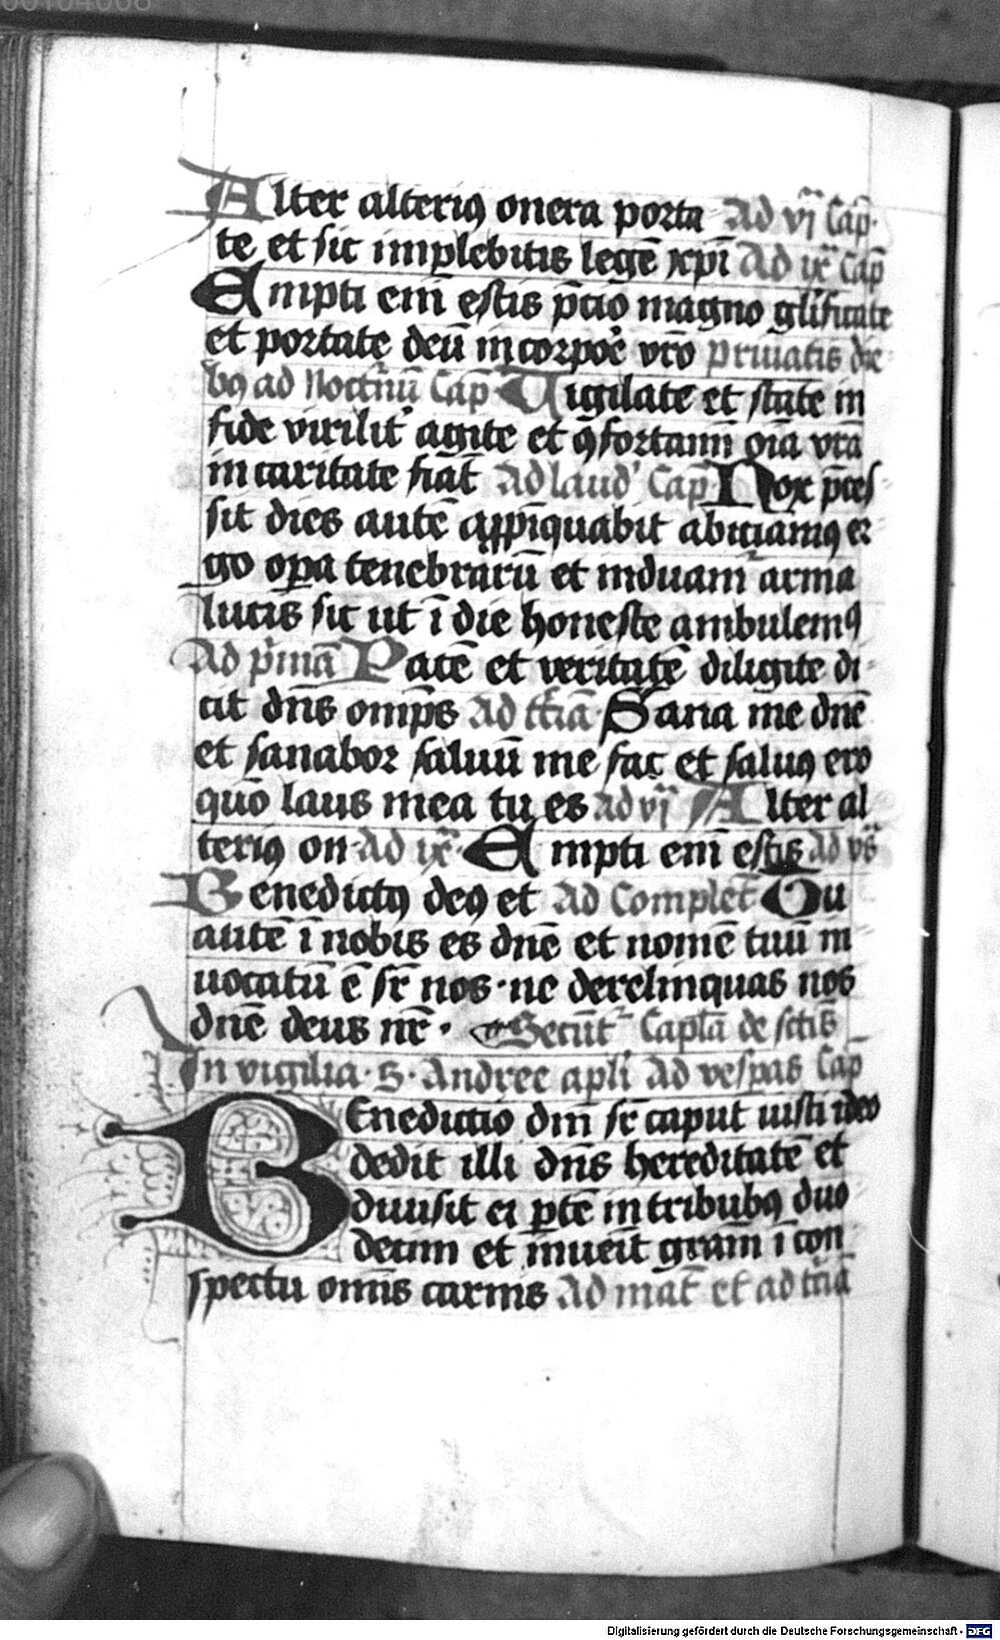 00104008
Alter alteriꝰ onera porta Ad vi Cap̄
te et sic implebitis legē xp̄i Ad ix Cap̄
Empti em̄ estis p̄cio magno gl̓ificate
et portate deū in corpoꝛe vr̄o priuatis die
bꝫ ad Nocturnū Cap̄ Uigilate et state in
fide virilit̓ agite et ꝯfortam̄ oīa vr̄a
in caritate fiāt Ad laud̓ Cap̄ Nox p̄ces
sit dies autē app̄iquabit abiciamꝰ er
go oꝑa tenebrarū et induam̄ arma
lucis sic ut ī die honeste ambulemꝰ
Ad p̓mā Pacē et veritatē diligite di
cit dn̄s omp̄s Ad t̓ciā Sana me dn̄e
et sanabor saluū me fac et saluꝰ ero
quō laus mea tu es ad vi Alter al
teriꝰ on ad ix Empti em̄ estis Ad vs̄
Benedictꝰ deꝰ et Ad Complet̄ Tu
autē ī nobis es dn̄e et nomē tuū in
uocatū ē sr̄ nos ne derelinquas nos
dn̄e deus nr̄ Secūt̓ Capl̄a de sctīs
In vigilia S. Andree apl̄i Ad vespas Cap̄
Benedictio dn̄i sr̄ caput iusti ideo
dedit illi dn̄s hereditatē et
diuisit ei ꝑtē in tribubꝫ duo
decim et inueīt grām ī con
spectu om̄is carnis Ad mat̄ et ad t̓ciā
Digitalisierung gefördert durch die Deutsche Forschungsgemeinschaft - DFG